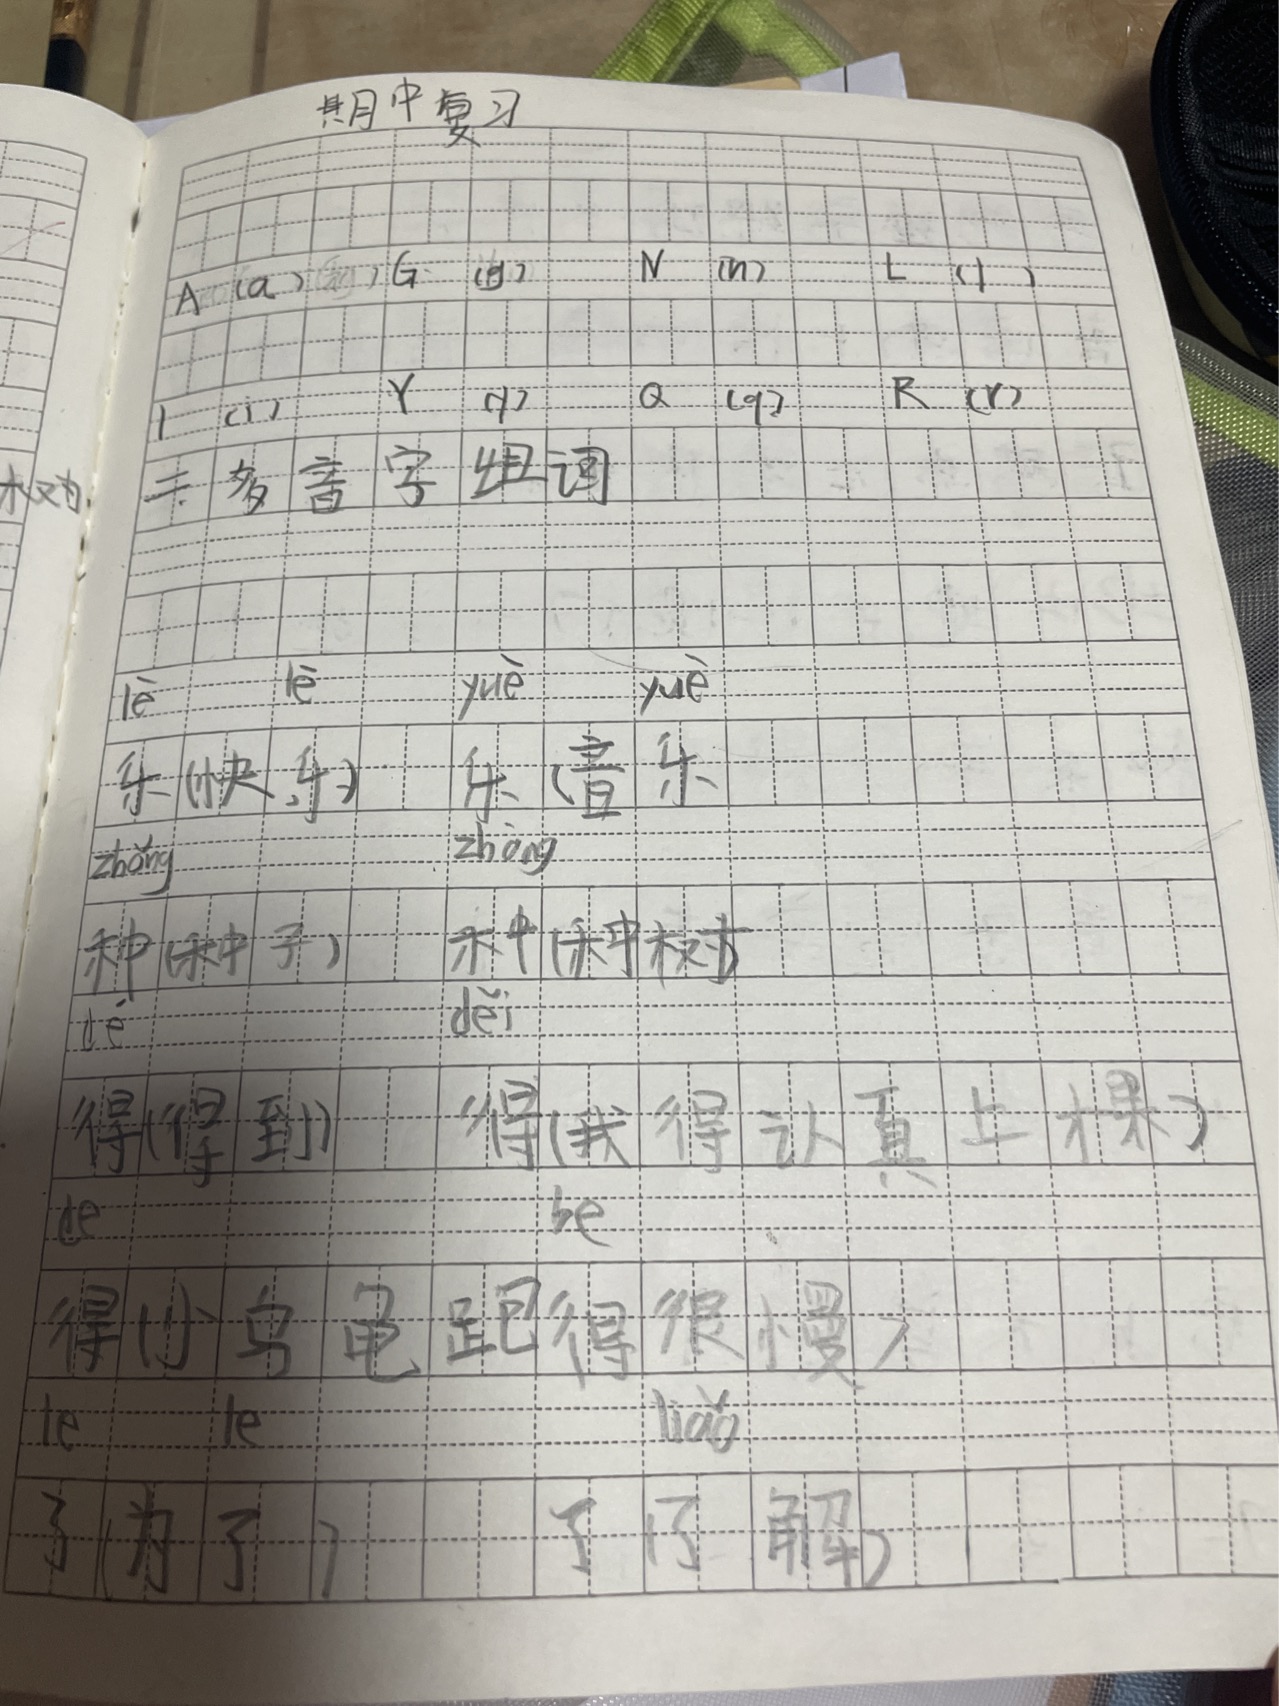 期中复习
A (a) G (g) N (n) L (l)
I (i) Y (y) Q (q) R (r)
二. 多音字组词
lè lè yuè yuè
乐(快乐) 乐(音乐
zhǒng zhòng
种(种子) 种(种树)
dé děi
得(得到) 得(我得认真上课)
de be
得(小乌龟跑得很慢)
le le liǎo
了(为了) 了(了解)